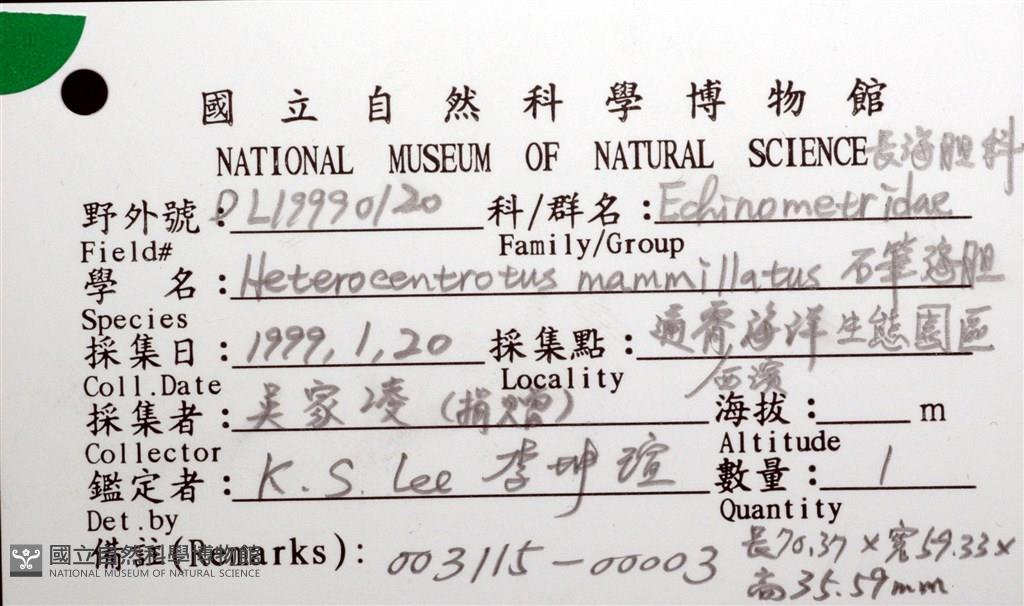 國立自然科學博物館
NATIONAL MUSEUM OF NATURAL SCIENCE 長海胆科
野外號：DL19990120 科/群名：Echinometridae
Field# Family/Group
學 名：Heterocentrotus mammillatus 石筆海胆
Species
採集日：1999,1,20 採集點：通霄海洋生態園區
Coll.Date Locality 西濱
採集者：吳家凌（捐贈） 海拔： m
Collector Altitude
鑑定者：K.S. Lee 李坤瑄 數量：1
Det.by Quantity
備註(Remarks)：003115-00003 長70.37×寬59.33×
高35.59mm
國立自然科學博物館
NATIONAL MUSEUM OF NATURAL SCIENCE